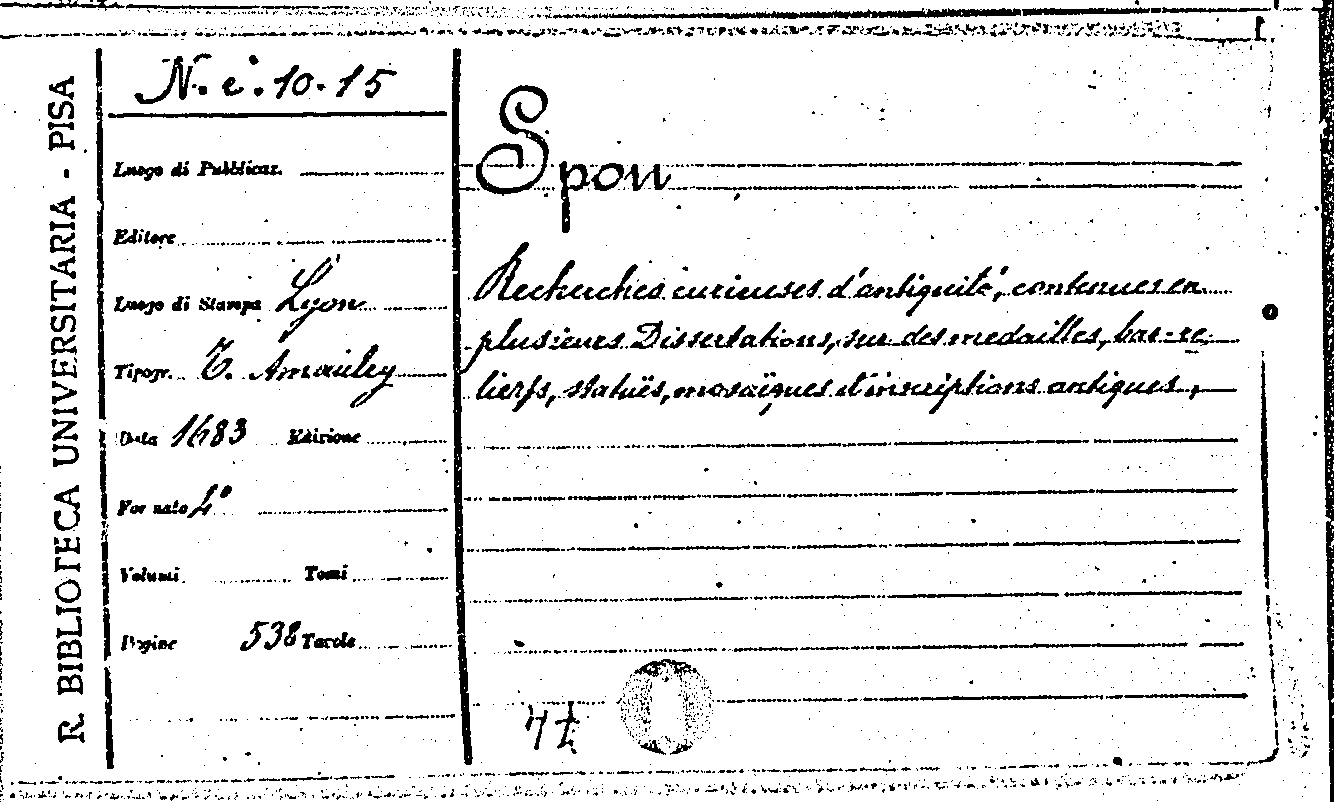 R. BIBLIOTECA UNIVERSITARIA - PISA
N. c. 10. 15
Luogo di Pubblicaz.
Editore
Luogo di Stampa Lyon
Tipogr. T. Amauley
Data 1683 Edizione
Formato 4°
Volumi Tomi
Pagine 538 Tavole
Spon
Recherches curieuses d'antiquité, contenues en
plusieurs Dissertations, sur des medailles, bas-re-
liefs, statuës, mosaïques d'inscriptions antiques,